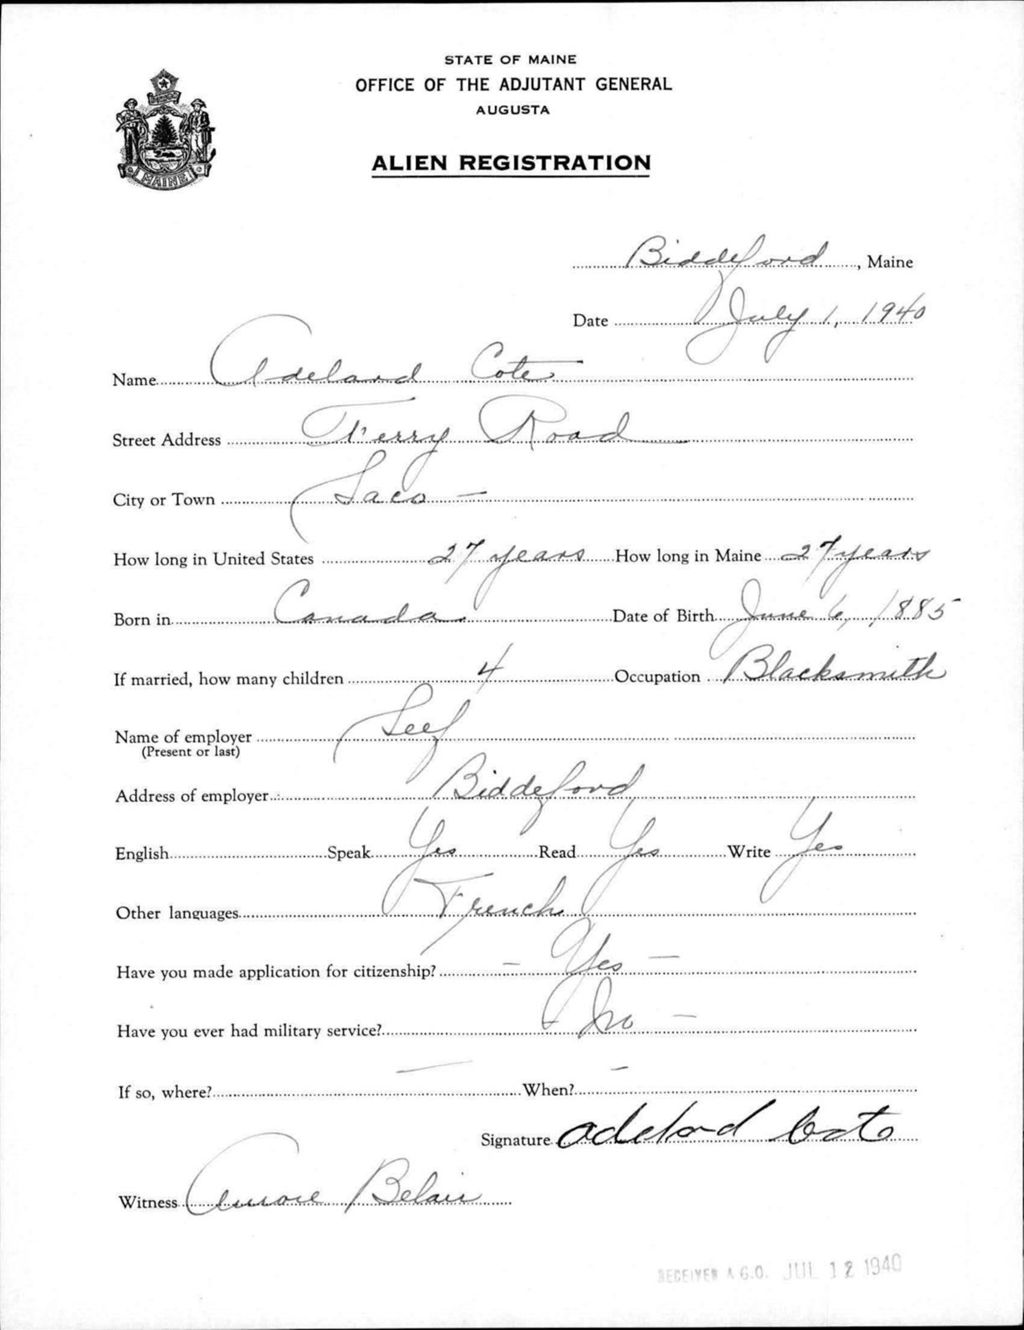 STATE OF MAINE
OFFICE OF THE ADJUTANT GENERAL
AUGUSTA
ALIEN REGISTRATION
MAINE
Biddeford, Maine
Date July 1, 1940
Name Adelard Cote
Street Address Ferry Road
City or Town Saco -
How long in United States 27 years How long in Maine 27 years
Born in Canada Date of Birth June 6, 1885
If married, how many children 4 Occupation Blacksmith
Name of employer Self
(Present or last)
Address of employer Biddeford
English Speak Yes Read Yes Write Yes
Other languages French
Have you made application for citizenship? - Yes -
Have you ever had military service? - No -
If so, where? - When? -
Signature Adelard Cote
Witness Belair
RECEIVED A.G.O. JUL 12 1940